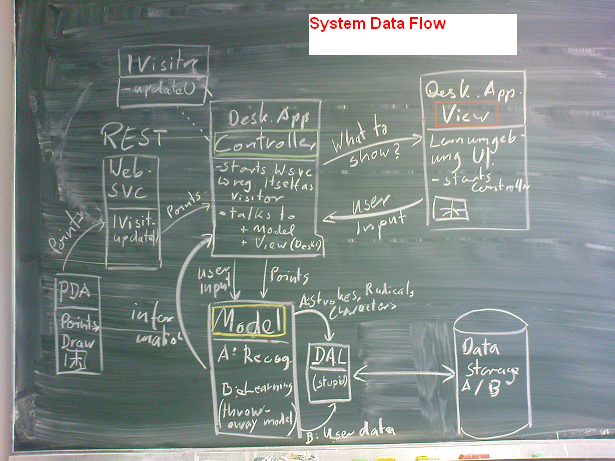 System Data Flow
IVisitor
-update()
REST
Web-
svc
IVisit.
update()
Points
Points
PDA
Points
Draw
木
infor
mation
Desk. App
Controller
-starts WSVC
reg itself as
visitor
• talks to
+ Model
+ View (Deskt)
What to
show?
User
input
Desk. App.
View
Lernumgeb-
ung UI.
- starts
controller
木
user
input
Points
Model
A: Recog.
B: Learning
(throw-
away model)
A: strokes, Radicals,
Characters
DAL
(stupid)
B: User data
Data
storage
A/B